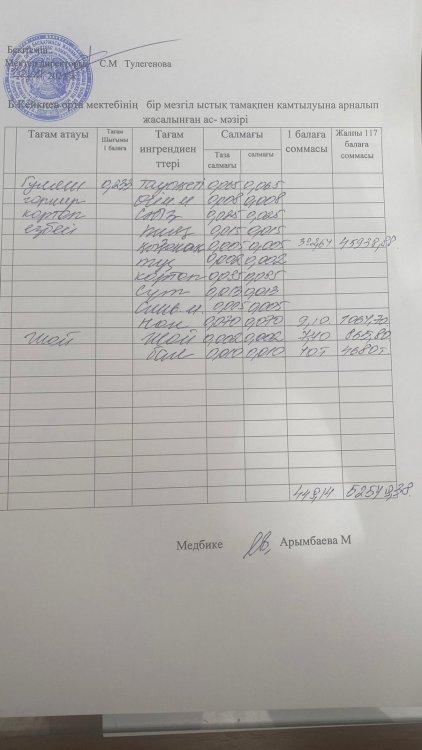 Бекітемін:
Мектеп директоры С.М Тулегенова
Б.Кейкиев орта мектебінің бір мезгіл ыстық тамақпен қамтылуына арналып
жасалынған ас- мәзірі
Тағам атауы Тағам Шығымы 1 балаға Тағам ингрендиенттері Салмағы 1 балаға соммасы Жалпы 117 балаға соммасы
Таза салмағы салмағы
Гуляш 0,233 0,065 0,065
гарнир 0,008 0,008
картоп сәбіз 0,025 0,025
езбей пияз 0,015 0,015
0,005 0,005 45938,88
тұз 0,002 0,002
картоп
сүт 0,013 0,013
0,005 0,005
нан 0,070 0,070 9,10 1064,70
Шай шай 0,002 0,002 7,40 865,80
бал 0,010 0,010 40т 4680т
449,14 52549,38
Медбике Арымбаева М